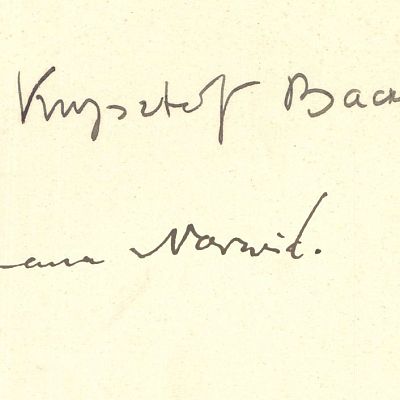 Krzysztof Bac
ana Norwid.